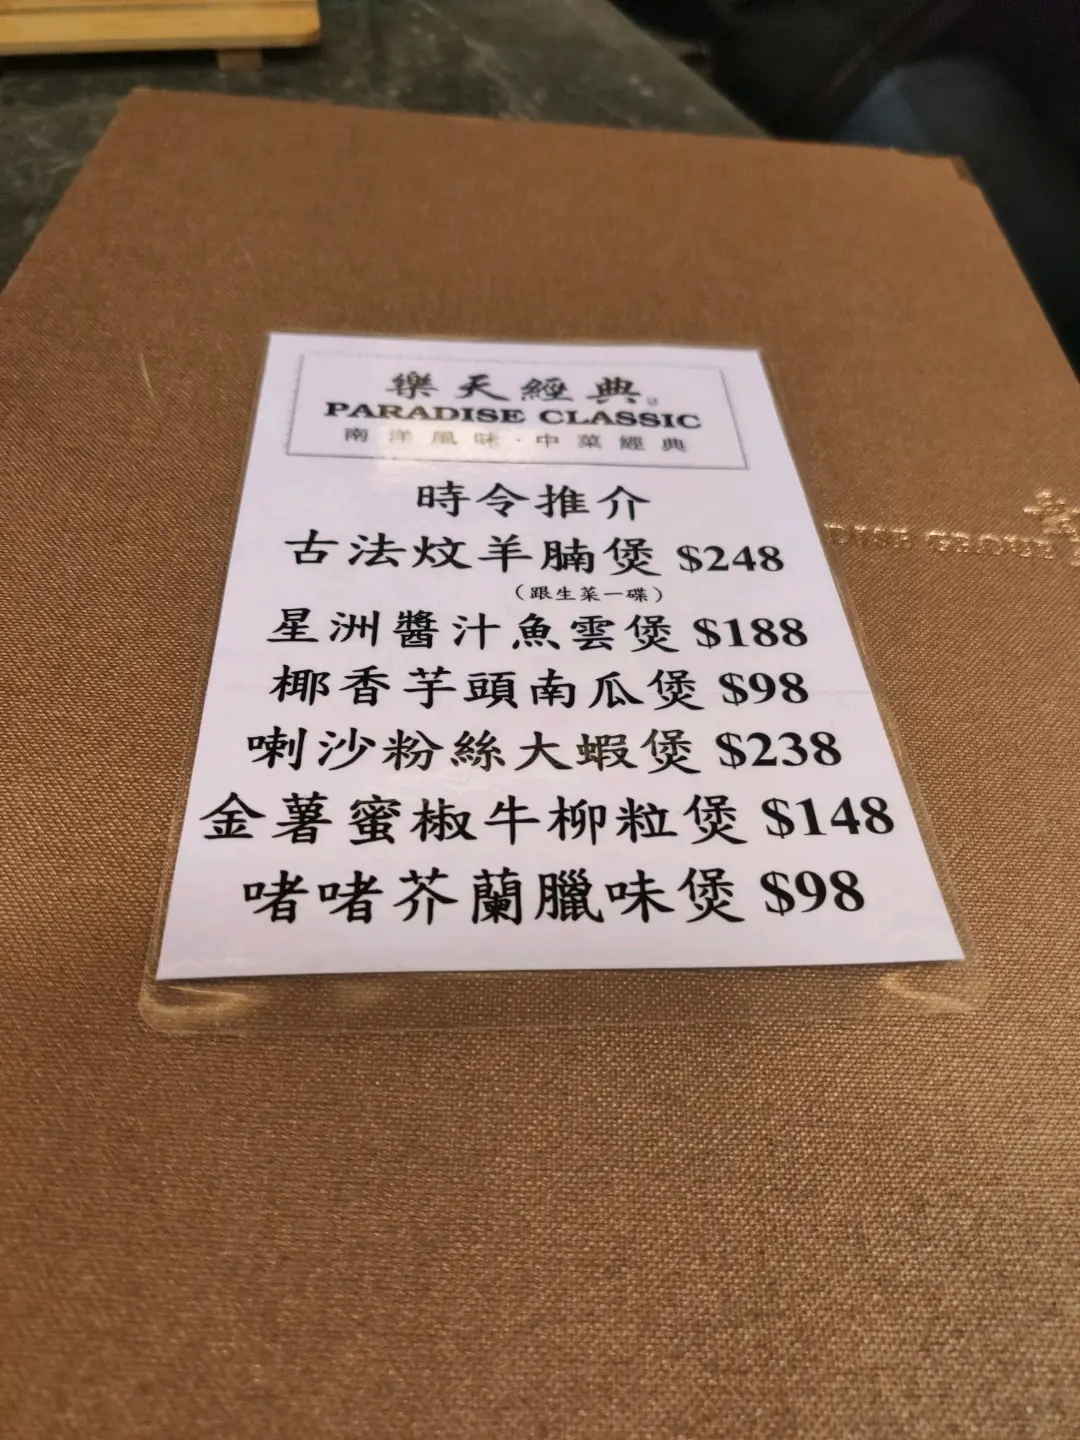 樂天經典
PARADISE CLASSIC
南洋風味·中菜經典
時令推介
古法炆羊腩煲 $248
（跟生菜一碟）
星洲醬汁魚雲煲 $188
椰香芋頭南瓜煲 $98
喇沙粉絲大蝦煲 $238
金薯蜜椒牛柳粒煲 $148
啫啫芥蘭臘味煲 $98
GROUP